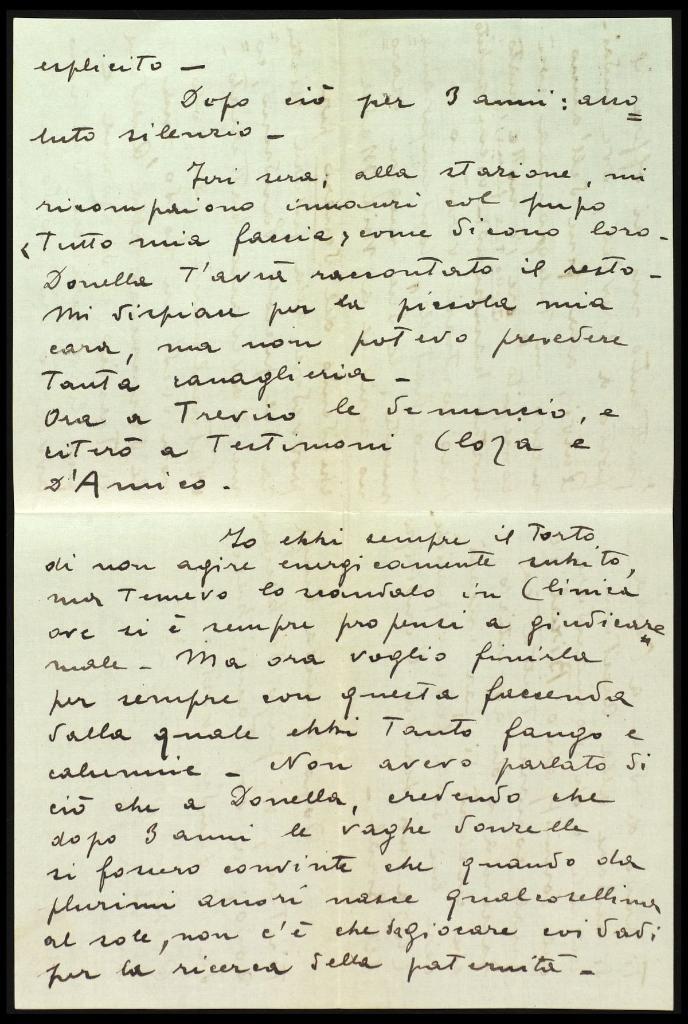 esplicito —
Dopo ciò per 3 anni: asso=
luto silenzio —
Jeri sera, alla stazione, mi
ricompaiono innanzi col pupo
"Tutto mia faccia" come dicono loro —
Donella T'avrà raccontato il resto —
Mi dispiace per la piccola mia
cara, ma non potevo prevedere
Tanta canaglieria —
Ora a Treviso le denuncio, e
citerò a Testimoni Cloza e
D'Amico.
Io ebbi sempre il Torto
di non agire energicamente subito,
ma Temevo lo scandalo in Clinica
ove si è sempre propensi a giudicare
male — Ma ora voglio finirla
per sempre con questa faccenda
dalla quale ebbi Tanto fango e
calunnie — Non avevo parlato di
ciò che a Donella, credendo che
dopo 3 anni le vaghe donzelle
si fossero convinte che quando da
plurimi amori nasce qualcosellina
al sole, non c'è che da giocare coi dadi
per la ricerca della paternità —